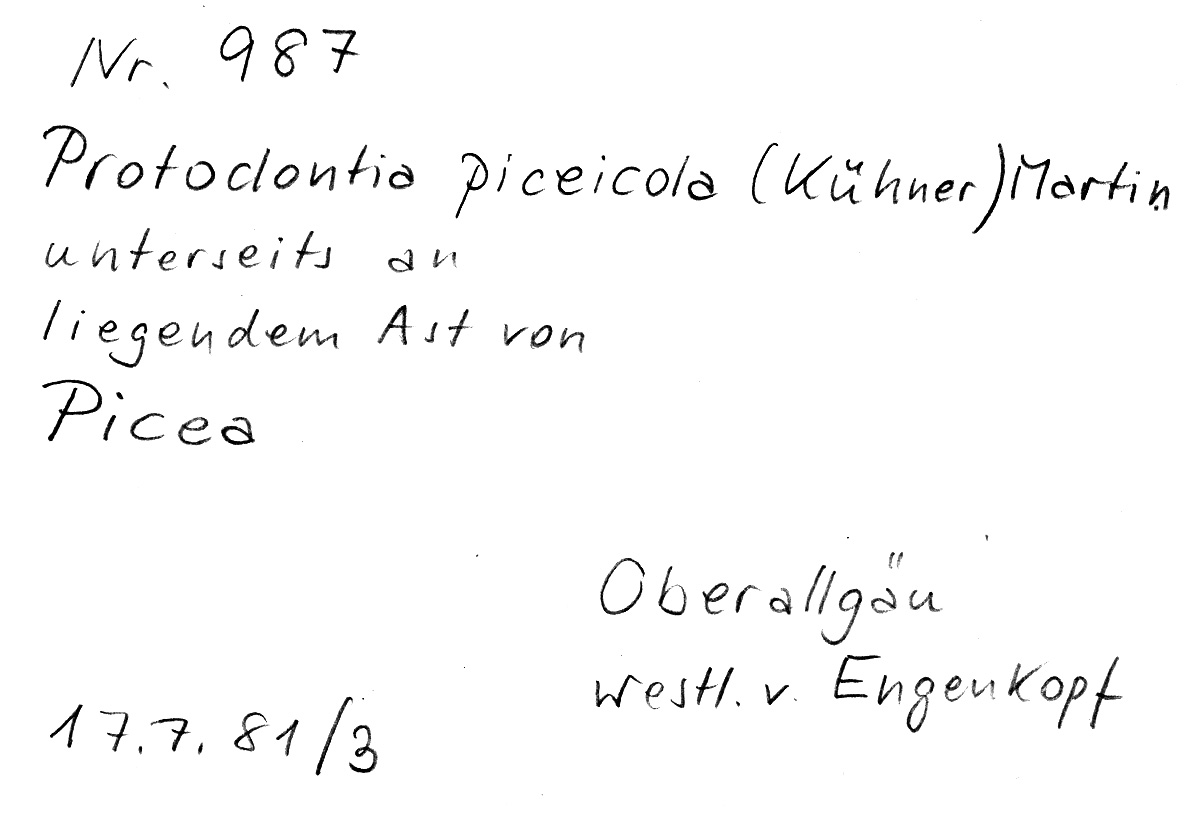 Nr. 987
Protodontia piceicola (Kühner) Martin
unterseits an
liegendem Ast von
Picea
Oberallgäu
westl. v. Engenkopf
17.7.81/3